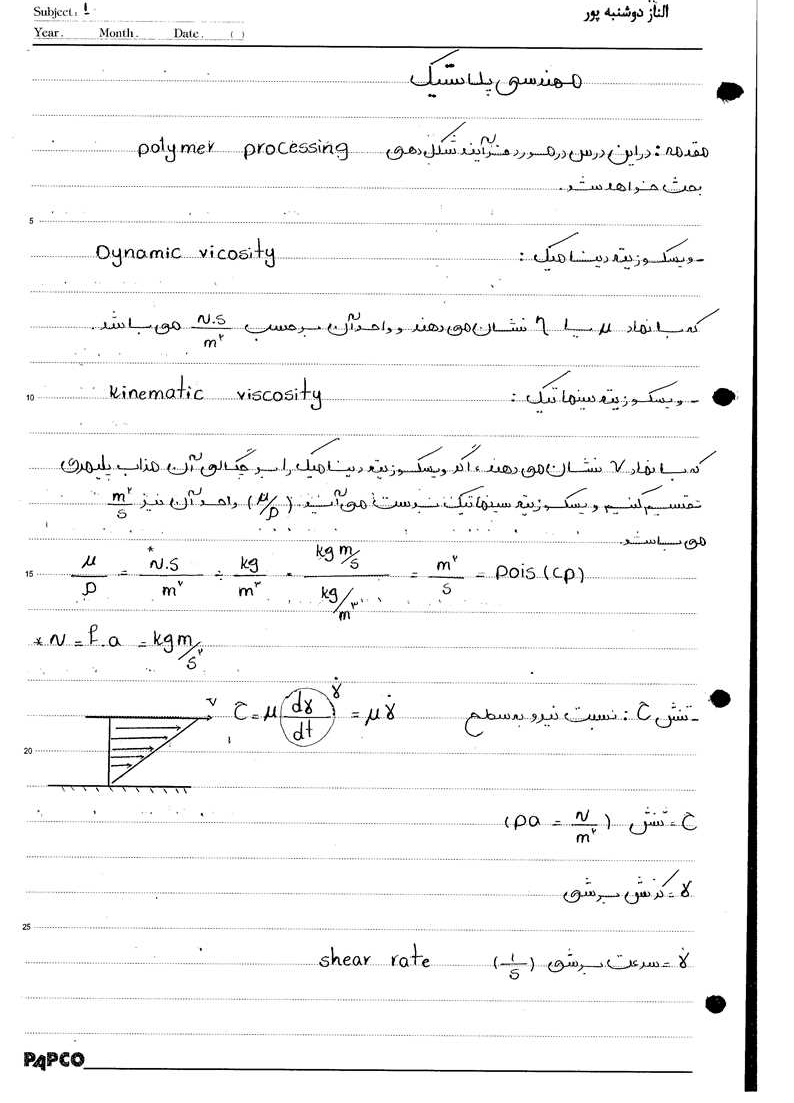 Subject: 1
الناز دوشنبه پور
Year. Month. Date. ( )
مهندسی پلاستیک
مقدمه: در این درس در مورد فرآیند شکل دهی polymer processing
بحث خواهد شد.
5
- ویسکوزیته دینامیک: Dynamic vicosity
که با نماد μ یا η نشان می دهند و واحد آن برحسب N.S/m² می باشد.
10
- ویسکوزیته سینماتیک: kinematic viscosity
که با نماد ν نشان می دهند، اگر ویسکوزیته دینامیک را بر چگالی آن مذاب پلیمری
تقسیم کنیم ویسکوزیته سینماتیک بدست می آید (μ/ρ) واحد آن نیز m²/s
می باشد.
15
μ/ρ = N.S*/m² ÷ kg/m³ = kg m/s / kg/m³ = m²/s = pois (cp)
* N = f.a = kg m/s²
- تنش τ: نسبت نیرو به سطح τ = μ (dγ/dt) γ̇ = μγ̇
v
20
τ = تنش (pa = N/m²)
γ = کرنش برشی
25
γ̇ = سرعت برشی (1/S) shear rate
PAPCO